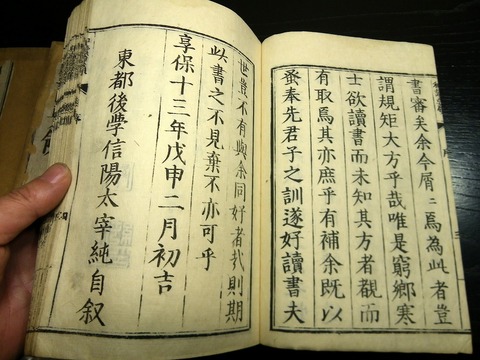 書審矣余今屑〻焉為此者豈
謂規矩大方乎哉唯是窮鄉寒
士欲讀書而未知其方者觀而
有取焉其亦庶乎有補余既以
蚤奉先君子之訓遂好讀書夫
世豈不有與余同好者哉則期
此書之不見棄不亦可乎
享保十三年戊申二月初吉
東都後學信陽太宰純自叙